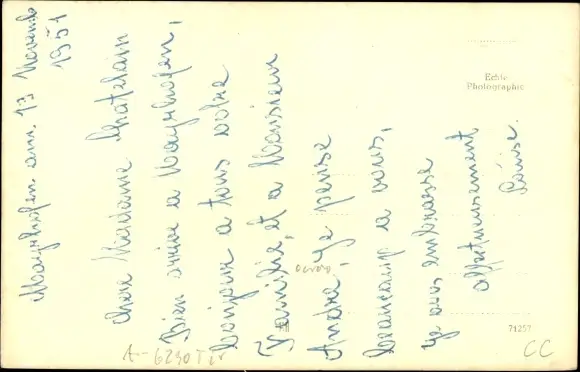 Mayrhofen am. 13 Novemb
1951
chere Madame Chatelain
Bien arrive a Mayrhofen,
bonjour a tous votre
Familie, et a Monsieur
Andre, Je pense
beaucoup a vous,
Je vous embrasse
affetueusement
Louise.
Echte
Photographie
71257
A-6290 Tir
CC